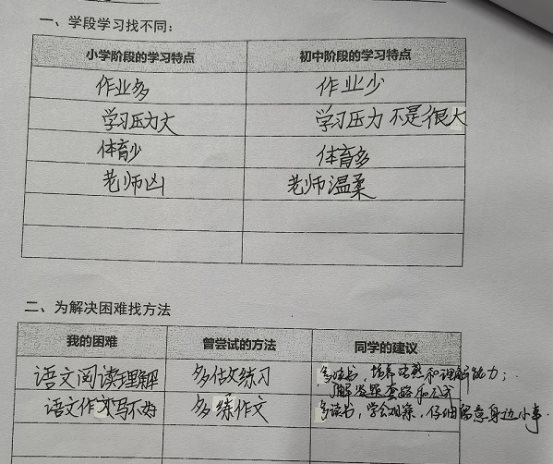 一、学段学习找不同：
小学阶段的学习特点 初中阶段的学习特点
作业多 作业少
学习压力大 学习压力不是很大
体育少 体育多
老师凶 老师温柔
二、为解决困难找方法
我的困难 曾尝试的方法 同学的建议
语文阅读理解 多做练习 多读书，培养 和理解能力；
了解 答题套路和公式
语文作文写不好 多练作文 多读书，学会观察，仔细留意身边小事.